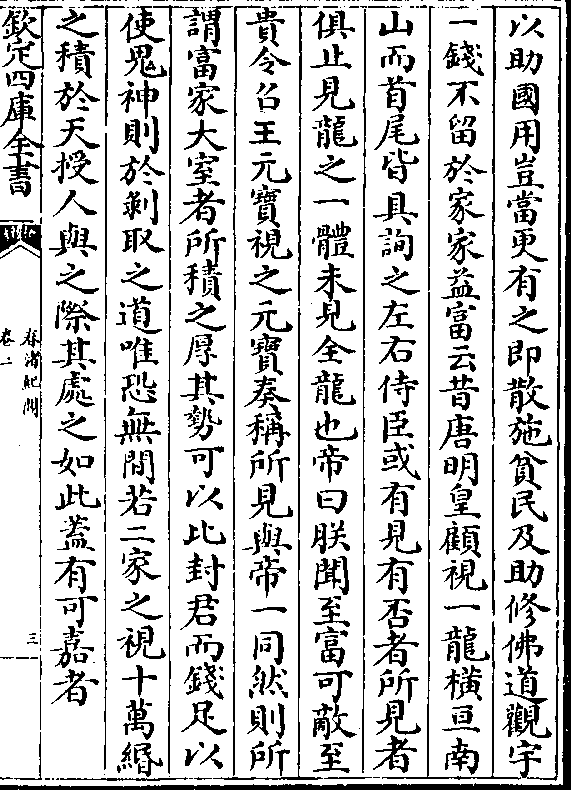 以助國用豈當更有之即散施貧民及助修佛道觀宇
一錢不留於家家益富云昔唐明皇顧視一龍橫亘南
山而首尾皆具詢之左右侍臣或有見有否者所見者
俱止見龍之一體未見全龍也帝曰朕聞至富可敵至
貴令召王元寶視之元寶奏稱所見與帝一同然則所
謂富家大室者所積之厚其勢可以比封君而錢足以
使鬼神則於剩取之道唯恐無間若二家之視十萬緡
之積於天授人與之際其處之如此葢有可嘉者
欽定四庫全書
春渚紀聞
卷二
三